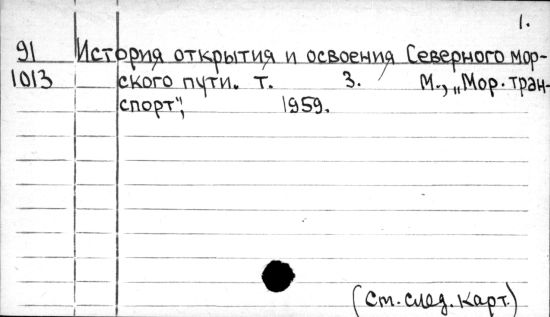 1.
91 История открытия и освоения Северного мор-
1013 ского пути. т. 3. М., „Мор. тран-
спорт", 1959.
(См. след. карт.)